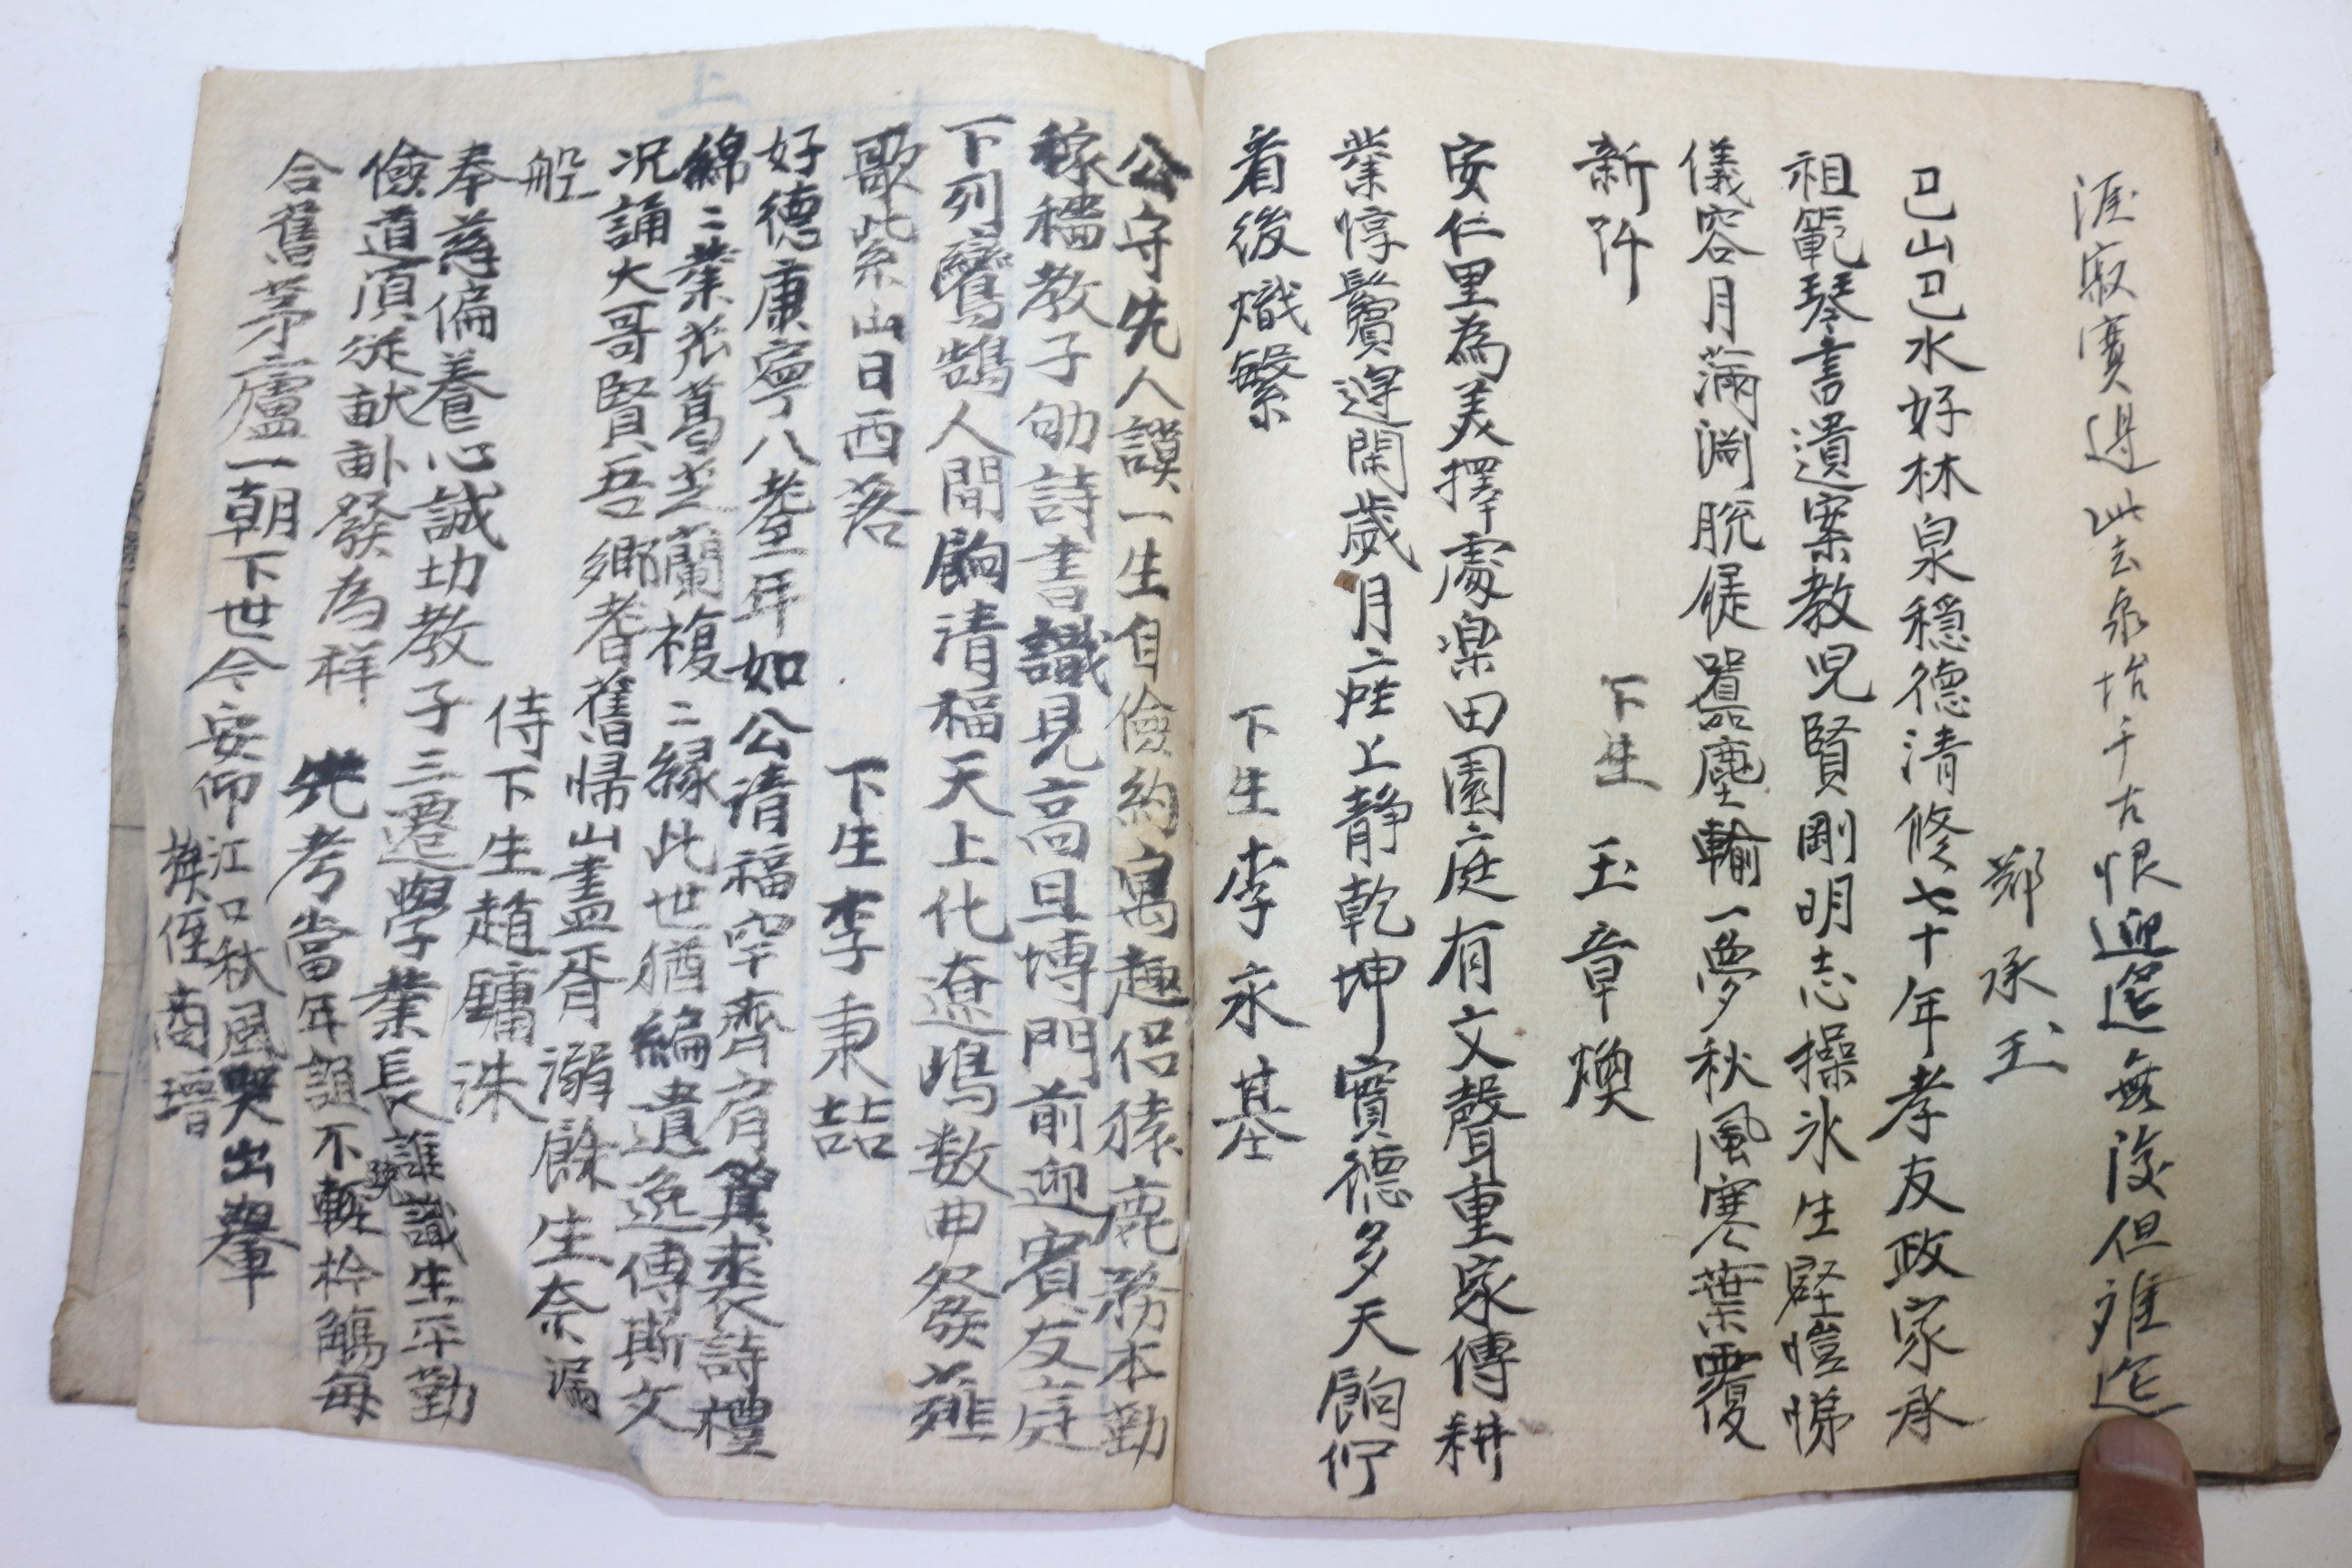 涯寂寞邊此去泉坮千古恨迎筵無後但難筵
鄭承玉
巳山巳水好林泉穩德清修七十年孝友政家承
祖範琴書遺案教児賢剛明志操氷生壑愷悌
儀容月滿淵脫屣囂塵輸一夢秋風寒葉覆
新阡
下生 玉章煥
安仁里為美擇處楽田園庭有文聲重家傳耕
業惇鬢邊閑歲月座上静乾坤實德多天餉佇
看後熾繁
下生李永基
公守先人謨一生自儉約寓趣侶猿鹿務本勤
稼穡教子劬詩書識見高且博門前迎賓友庭
下列鸞鵠人間餉清福天上化遼鳴数曲發薤
歌紫山日西落
下生李秉喆
好德康寧八耋年如公清福罕齊肩箕裘詩禮
綿〻業瓜葛芝蘭複〻緣此世猶編遺逸傳斯文
况誦大哥賢吾鄉耆舊帰山盡胥溺餘生奈漏
船
侍下生趙鏞洙
奉慈偏養心誠功教子三遷學業長誰識生平勤
儉道頂從畎畝發為祥
先考當年誼不輕枔觴每
合舊茅廬一朝下世令安仰江口秋風哭出轝
損侄商增